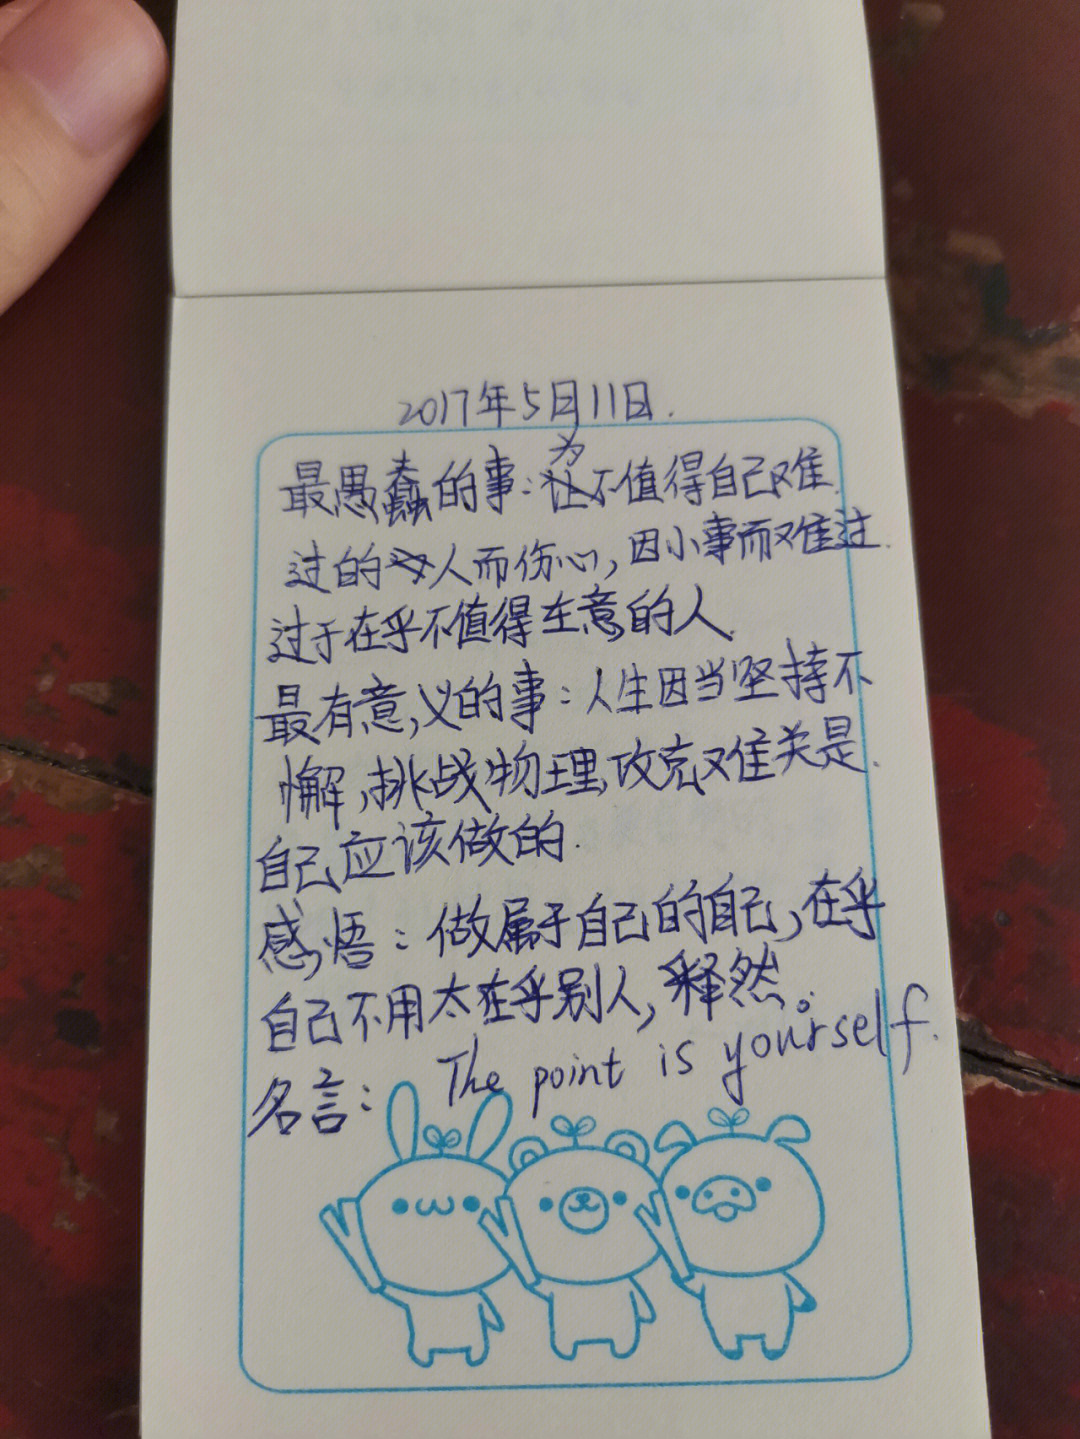 2017年5月11日.
最愚蠢的事:为不值得自己难
过的人而伤心,因小事而难过.
过于在乎不值得在意的人.
最有意义的事:人生因当坚持不
懈,挑战物理,攻克难关是.
自己应该做的.
感悟:做属于自己的自己,在乎
自己不用太在乎别人,释然。
名言: The point is yourself.